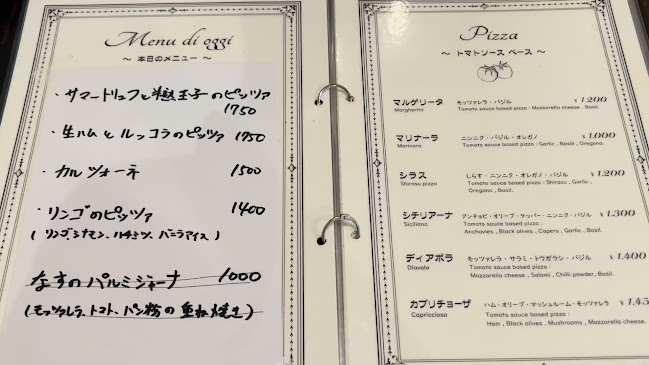 Menu di oggi
～ 本日のメニュー ～
・サマートリュフと半熟玉子のピッツァ
1750
・生ハムとルッコラのピッツァ 1750
・カルツォーネ 1500
・リンゴのピッツァ 1400
(リンゴ、シナモン、ハチミツ、バニラアイス)
なすのパルミジャーナ 1000
(モッツァレラ、トマト、パン粉の重ね焼き)
Pizza
～ トマトソース ベース ～
マルゲリータ モッツァレラ・バジル ¥1.200
Margherita Tomato sauce based pizza : Mozzarella cheese , Basil.
マリナーラ ニンニク・バジル・オレガノ ¥1.000
Marinara Tomato sauce based pizza : Garlic , Basil , Oregano.
シラス しらす・ニンニク・オレガノ・バジル ¥1.200
Shirasu pizza Tomato sauce based pizza : Shirasu , Garlic ,
Oregano , Basil.
シチリアーナ アンチョビ・オリーブ・ケッパー・ニンニク・バジル ¥1.300
Siciliana Tomato sauce based pizza :
Anchovies , Black olives , Capers , Garlic , Basil.
ディアボラ モッツァレラ・サラミ・トウガラシ・バジル ¥1.400
Diavola Tomato sauce based pizza :
Mozzarella cheese , Salami , Chilli powder, Basil.
カプリチョーザ ハム・オリーブ・マッシュルーム・モッツァレラ ¥1.45
Capricciosa Tomato sauce based pizza :
Ham , Black olives , Mushrooms , Mazzarella cheese.